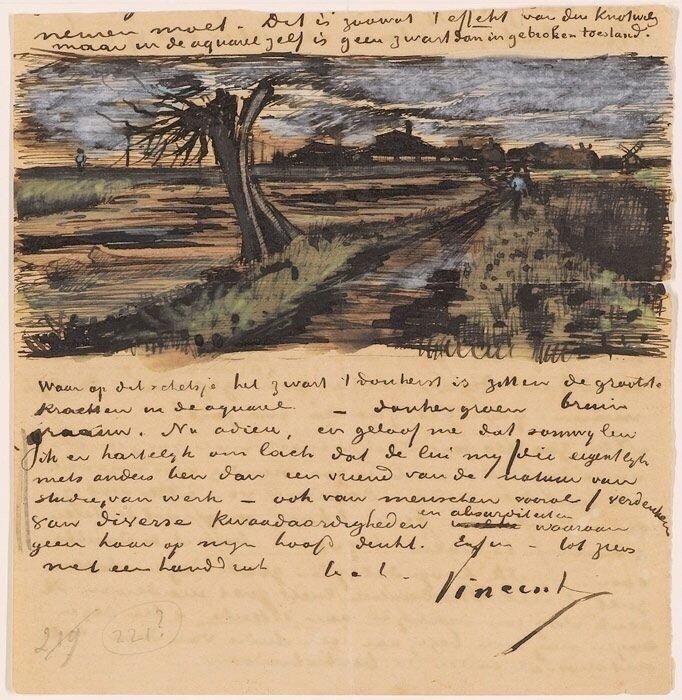 nemen moet. Dit is zoowat 't effekt van den Knotwilg
maar in de aquarel zelf is geen zwart dan in gebroken toestand.
Waar op dit schetsje het zwart 't donkerst is zitten de grootste
krachten in de aquarel – donkergroen bruin
graauw. Nu adieu, en geloof me dat somwijlen
ik er hartelyk om lach dat de lui my /die eigentlyk
niets anders ben dan een vriend van de natuur van
studie, van werk – ook van menschen vooral/ verdenken
van diverse kwaadaardigheden en absurditeiten waaraan
geen haar op mijn hoofd denkt. Enfin – tot ziens
met een handdruk t. à t.
Vincent
219
221?